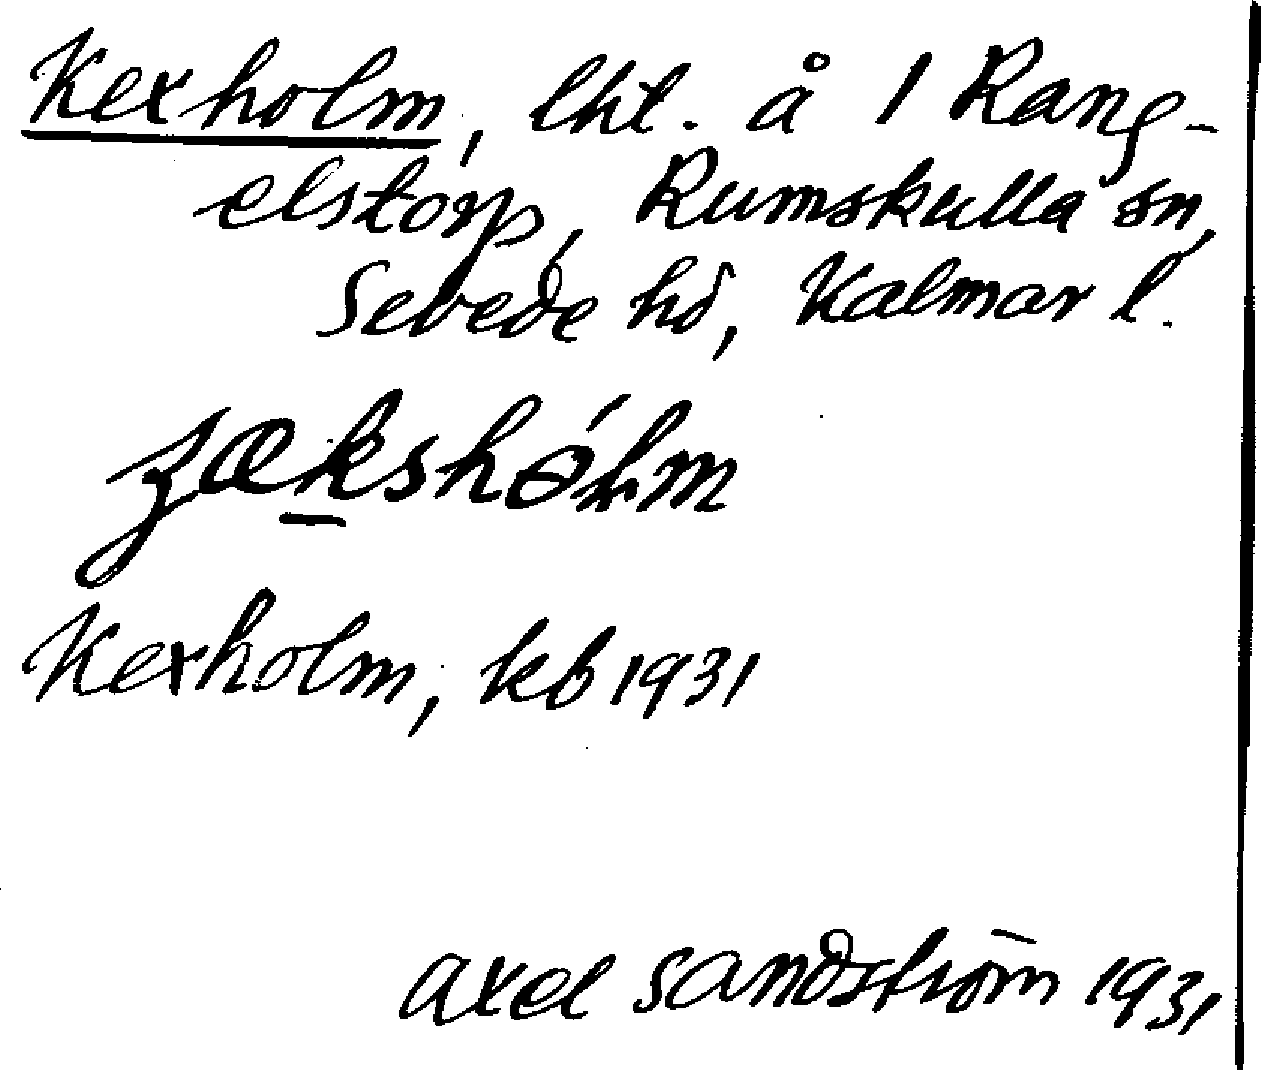 Kexholm, lht. å 1 Rang-
elstorp, Rumskulla sn,
Sevede hd, Kalmar l.
ʒækshólm
Kexholm, kb 1931
Axel Sandström 1931